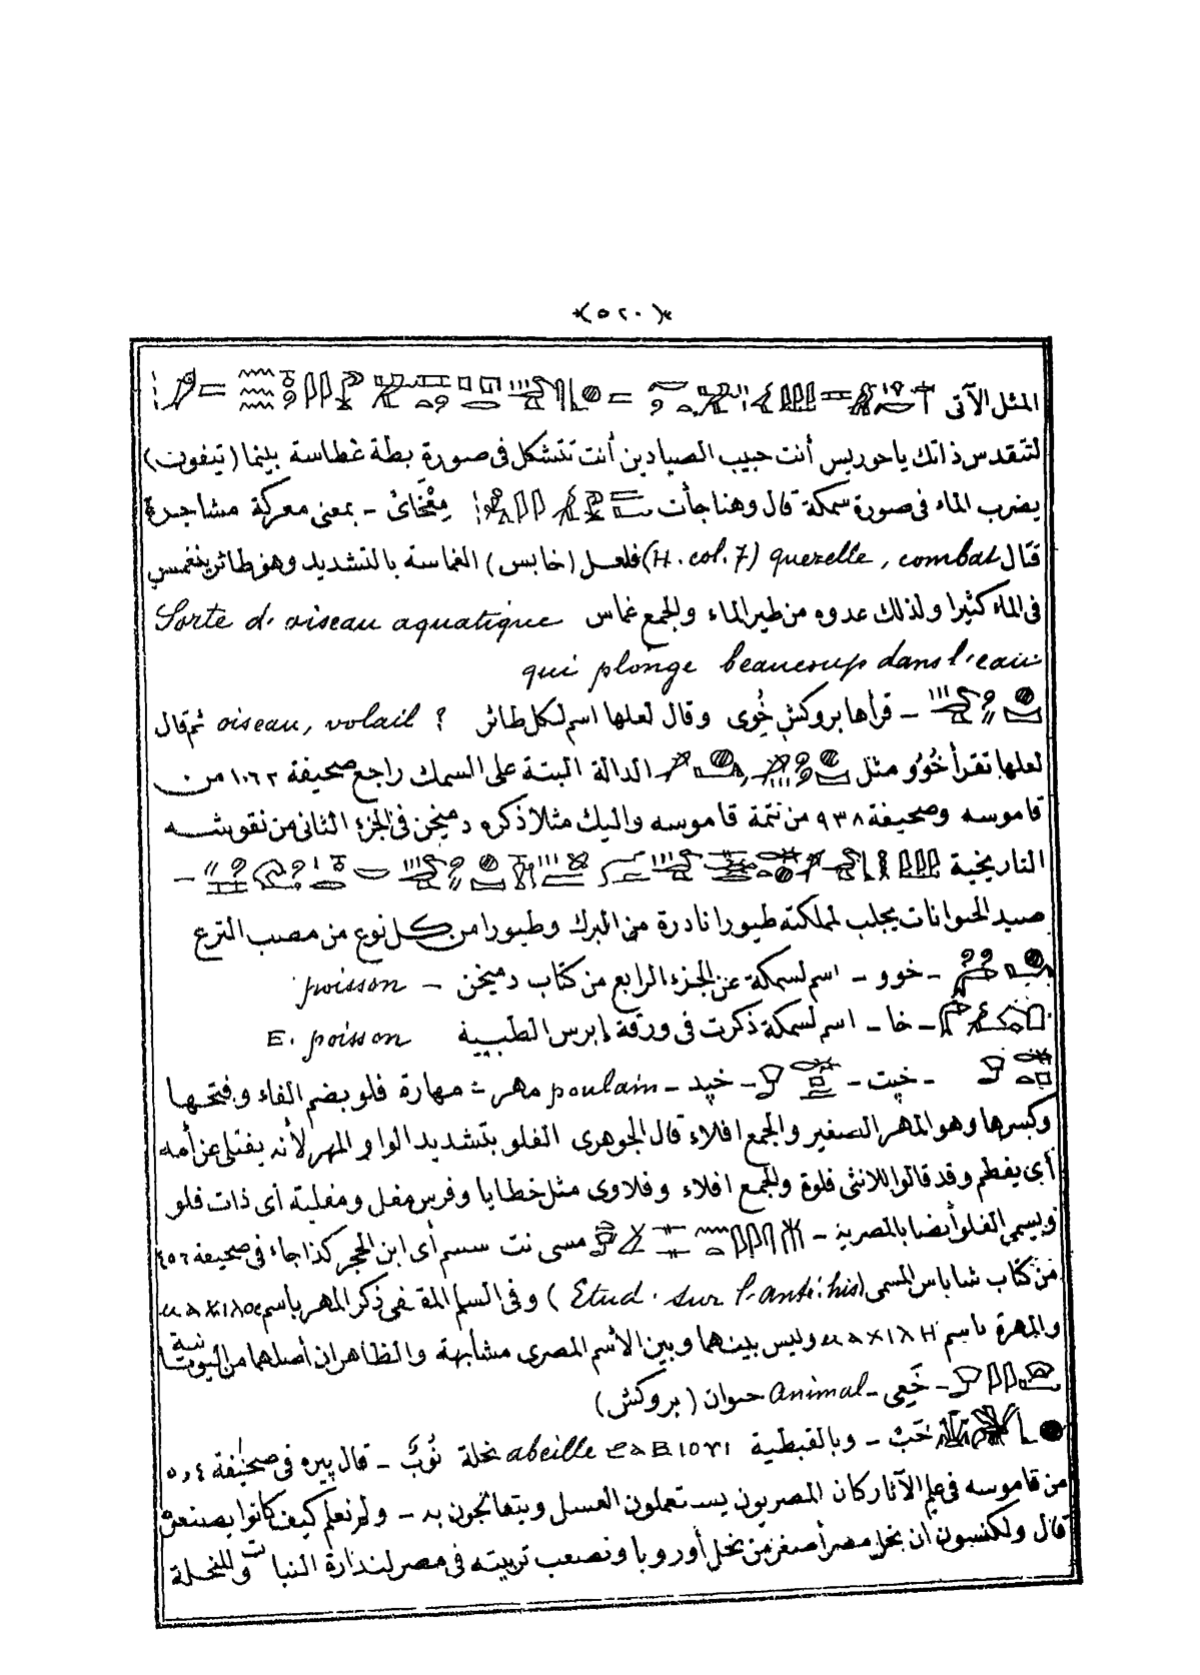 ﴿٥٢٠﴾
المثل الآتى = =
لتتقدس ذاتك ياحوريس أنت حبيب الصيادين أنت تتشكل فى صورة بطة غطاسة بينما (تيفون)
يضرب الماء فى صورة سمكة قال وهنا جأت مِغْخَائ - بمعنى معركة مشاجرة
قتال querelle, combat (H. col. 7) فلعل (خابس) الغماسة بالتشديد وهو طائر ينغمس
فى الماء كثيرا ولذلك عدوه من طير الماء والجمع غماس Sorte d'oiseau aquatique
qui plonge beaucoup dans l'eau
- قرأها بروكش خُوِى وقال لعلها اسم لكل طائر ? oiseau, volail ثم قال
لعلها تقرأ خُوُو مثل الدالة البتة على السمك راجع صحيفة ١٠٦٢ من
قاموسه وصحيفة ٩٣٨ من تتمة قاموسه واليك مثلا ذكره دميخن فى الجزء الثانى من نقوشه
التاريخية -
صيد الحيوانات يجلب لمملكته طيورا نادرة من البرك وطيورا من كل نوع من مصب الترع
- خوو - اسم لسمكة عن الجزء الرابع من كتاب دميخن - poisson
- خا - اسم لسمكة ذكرت فى ورقة إبرس الطبية E. poisson
- خپت - - خپد - poulain مهر = مهارة فلو بضم الفاء وفتحها
وكسرها وهو المهر الصغير والجمع افلاء قال الجوهرى الفلو بتشديد الواو المهر لأنه يفتلى عن أمه
أى يفطم وقد قالوا للانثى فلوة والجمع افلاء وفلاوى مثل خطايا وفرس مفل ومفلية أى ذات فلو
ويسمى الفلو أيضا بالمصرية - مسى نت سسم أى ابن الحجر كذا جاء فى صحيفة ٤٥٦
من كتاب شاباس المسمى (Etud. sur l'anti: his) وفى السلم المقفى ذكر المهر باسم
والمهرة باسم ⲙⲁⲭⲓⲗⲏ وليس بينهما وبين الاسم المصرى مشابهة والظاهر ان أصلهما من اليونانية
- خَعِى - animal حيوان (بروكش)
خَبْ - وبالقبطية abeille نحلة نُوبٌ - قال پيره فى صحيفة ٥٠٤
من قاموسه فى علم الآثار كان المصريون يستعملون العسل ويتعالجون به - ولم نعلم كيف كانوا يصنعونه
قال ولكنسون ان نحل مصر أصغر من نحل أوروبا وتصعب تربيته فى مصر لندارة النبات وللنحلة